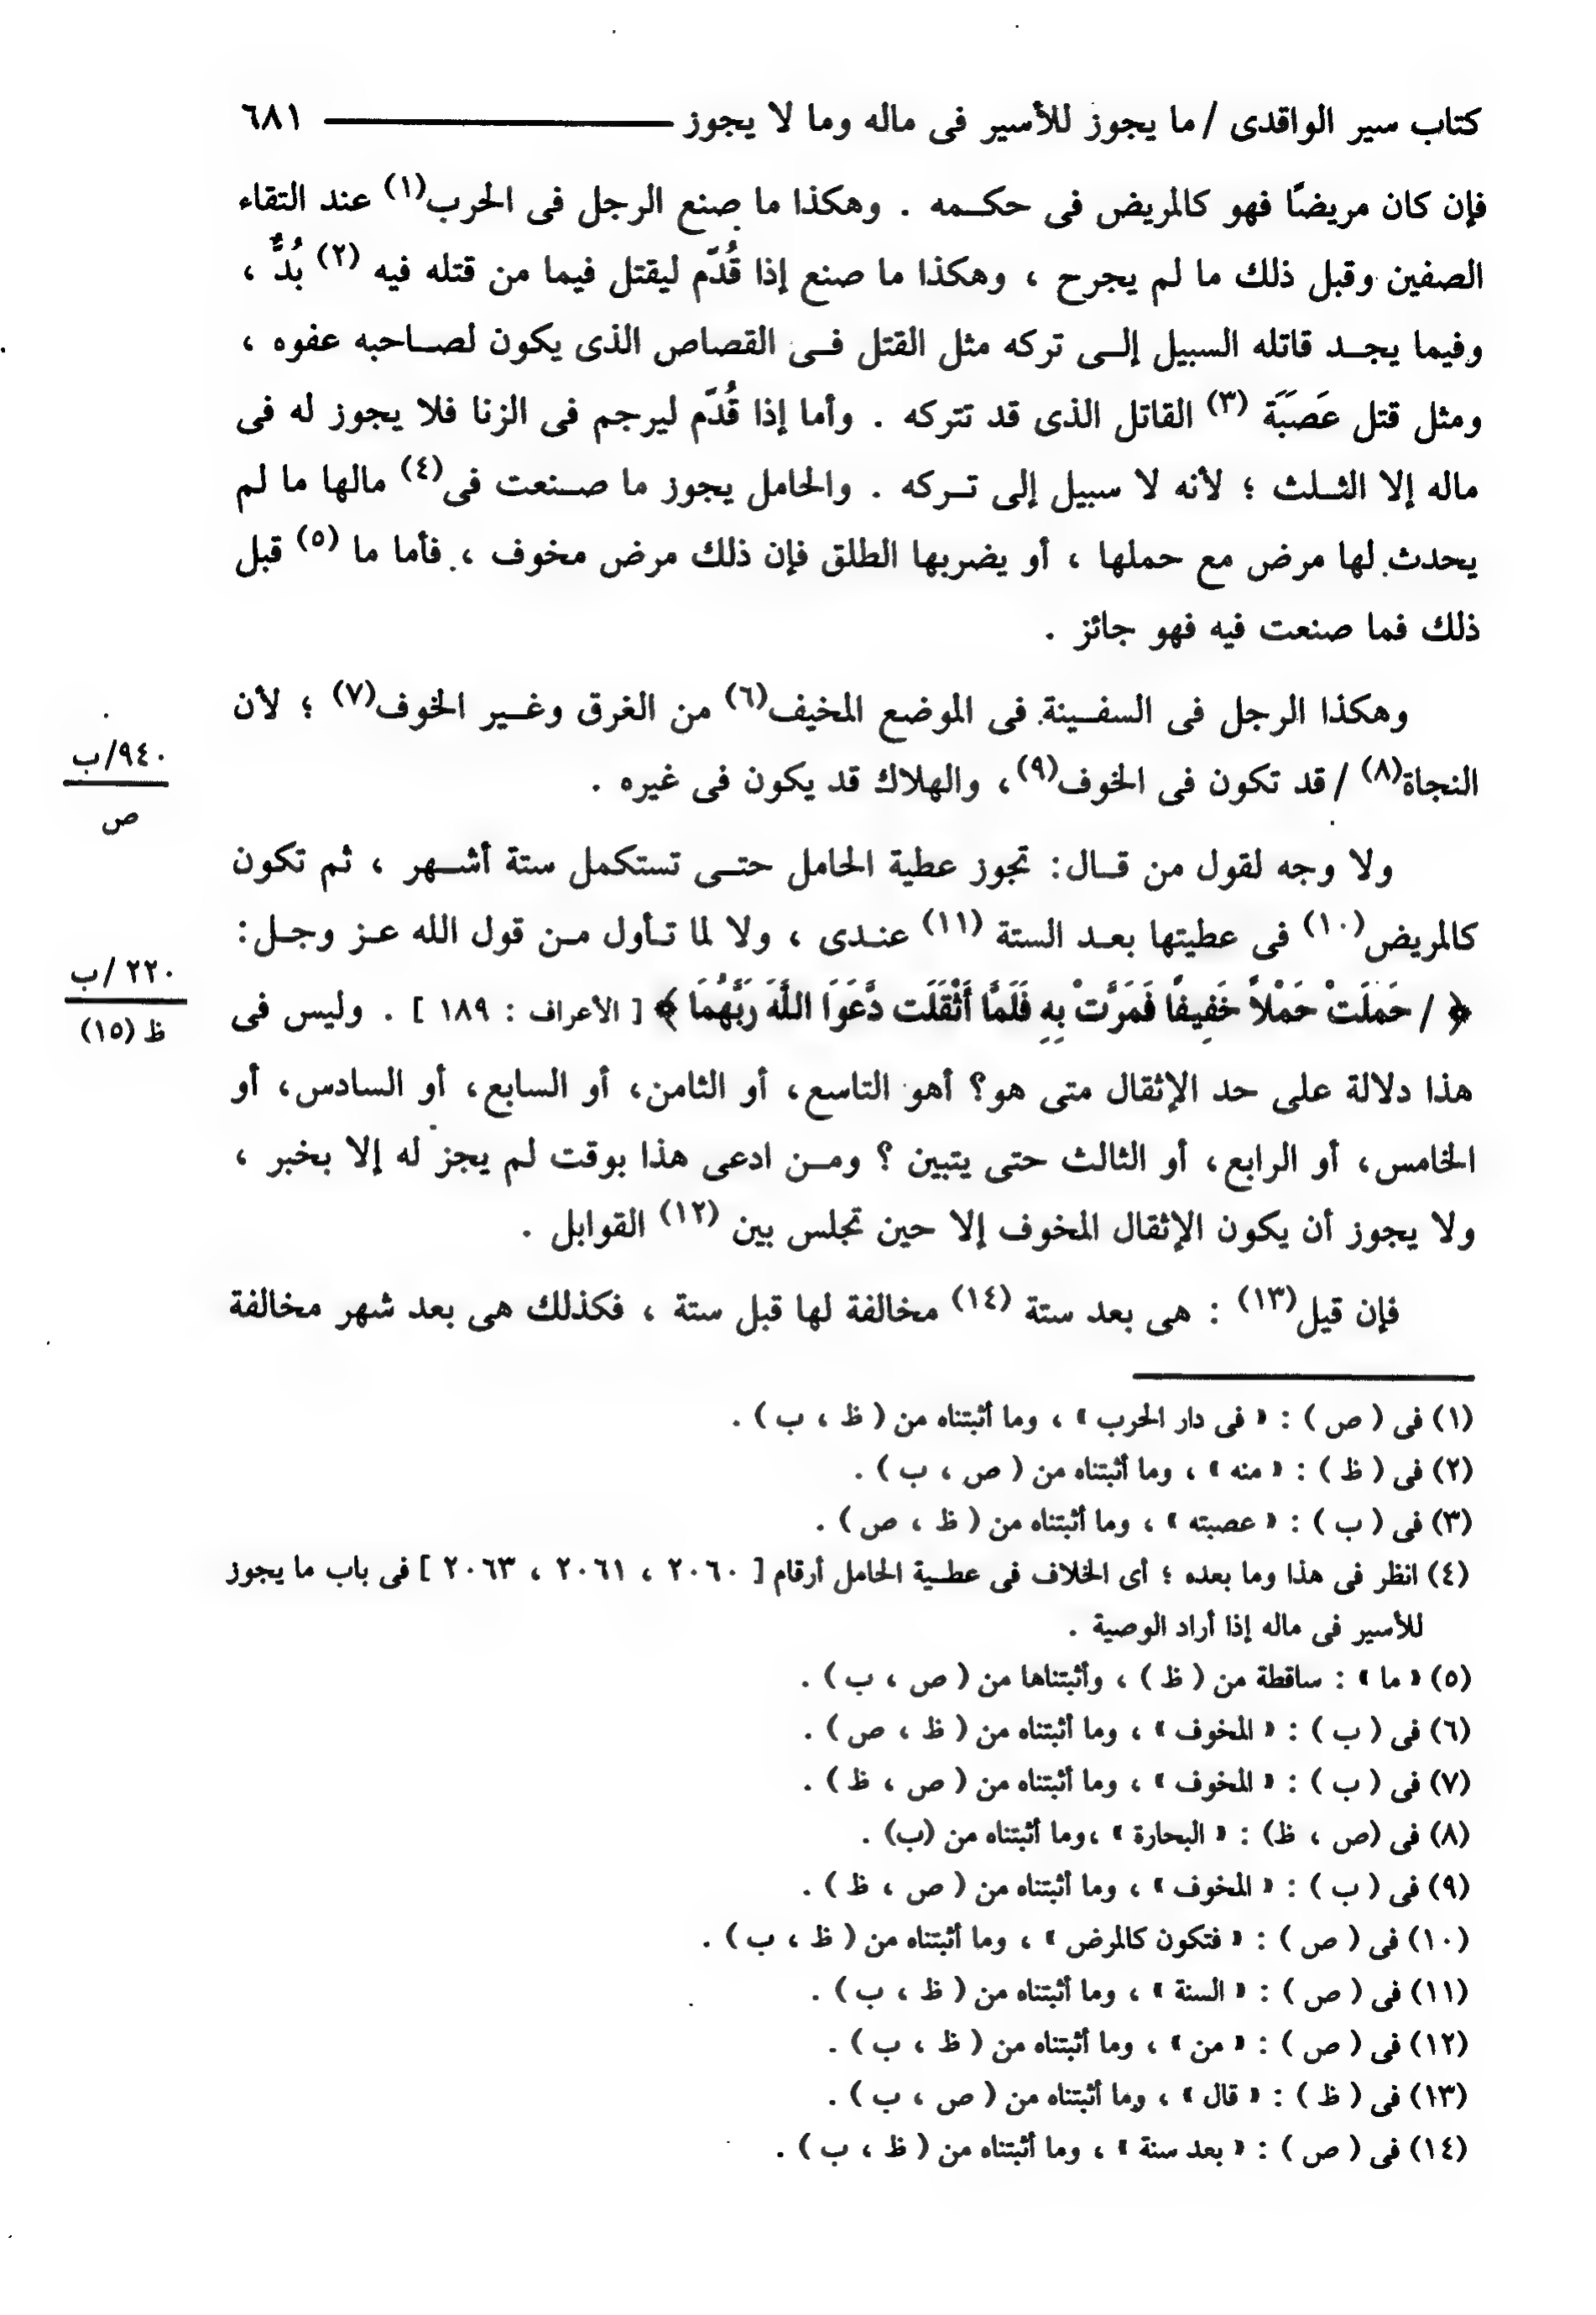 كتاب سير الواقدى / ما يجوز للأسير فى ماله وما لا يجوز ٦٨١
فإن كان مريضًا فهو كالمريض فى حكمه . وهكذا ما صنع الرجل فى الحرب(١) عند التقاء
الصفين وقبل ذلك ما لم يجرح ، وهكذا ما صنع إذا قُدّم ليقتل فيما من قتله فيه (٢) بُدٌّ ،
وفيما يجد قاتله السبيل إلى تركه مثل القتل فى القصاص الذى يكون لصاحبه عفوه ،
ومثل قتل عَصَبَة (٣) القاتل الذى قد تتركه . وأما إذا قُدّم ليرجم فى الزنا فلا يجوز له فى
ماله إلا الثلث ؛ لأنه لا سبيل إلى تركه . والحامل يجوز ما صنعت فى(٤) مالها ما لم
يحدث لها مرض مع حملها ، أو يضربها الطلق فإن ذلك مرض مخوف ، فأما ما (٥) قبل
ذلك فما صنعت فيه فهو جائز .
وهكذا الرجل فى السفينة فى الموضع المخيف(٦) من الغرق وغير الخوف(٧) ؛ لأن
النجاة(٨) / قد تكون فى الخوف(٩)، والهلاك قد يكون فى غيره .
٩٤٠/ب
ص
ولا وجه لقول من قال: تجوز عطية الحامل حتى تستكمل ستة أشهر ، ثم تكون
كالمريض(١٠) فى عطيتها بعد الستة (١١) عندى ، ولا لما تأول من قول الله عز وجل:
﴿ / حَمَلَتْ حَمْلاً خَفِيفًا فَمَرَّتْ بِهِ فَلَمَّا أَثْقَلَت دَّعَوَا اللَّهَ رَبَّهُمَا ﴾ [ الأعراف : ١٨٩ ] . وليس فى
٢٢٠/ب
ظ (١٥)
هذا دلالة على حد الإثقال متى هو؟ أهو التاسع، أو الثامن، أو السابع، أو السادس، أو
الخامس، أو الرابع، أو الثالث حتى يتبين ؟ ومن ادعى هذا بوقت لم يجز له إلا بخبر ،
ولا يجوز أن يكون الإثقال المخوف إلا حين تجلس بين (١٢) القوابل .
فإن قيل(١٣) : هى بعد ستة (١٤) مخالفة لها قبل ستة ، فكذلك هى بعد شهر مخالفة
(١) فى ( ص ) : « فى دار الحرب » ، وما أثبتناه من ( ظ ، ب ) .
(٢) فى ( ظ ) : « منه » ، وما أثبتناه من ( ص ، ب ) .
(٣) فى ( ب ) : « عصبته » ، وما أثبتناه من ( ظ ، ص ) .
(٤) انظر فى هذا وما بعده ؛ أى الخلاف فى عطية الحامل أرقام [ ٢٠٦٠ ، ٢٠٦١ ، ٢٠٦٣ ] فى باب ما يجوز
للأسير فى ماله إذا أراد الوصية .
(٥) « ما » : ساقطة من ( ظ ) ، وأثبتناها من ( ص ، ب ) .
(٦) فى ( ب ) : « المخوف » ، وما أثبتناه من ( ظ ، ص ) .
(٧) فى ( ب ) : « المخوف » ، وما أثبتناه من ( ص ، ظ ) .
(٨) فى (ص ، ظ) : « البحارة » ،وما أثبتناه من (ب) .
(٩) فى ( ب ) : « المخوف » ، وما أثبتناه من ( ص ، ظ ) .
(١٠) فى ( ص ) : « فتكون كالمرض » ، وما أثبتناه من ( ظ ، ب ) .
(١١) فى ( ص ) : « السنة » ، وما أثبتناه من ( ظ ، ب ) .
(١٢) فى ( ص ) : « من » ، وما أثبتناه من ( ظ ، ب ) .
(١٣) فى ( ظ ) : « قال » ، وما أثبتناه من ( ص ، ب ) .
(١٤) فى ( ص ) : « بعد سنة » ، وما أثبتناه من ( ظ ، ب ) .